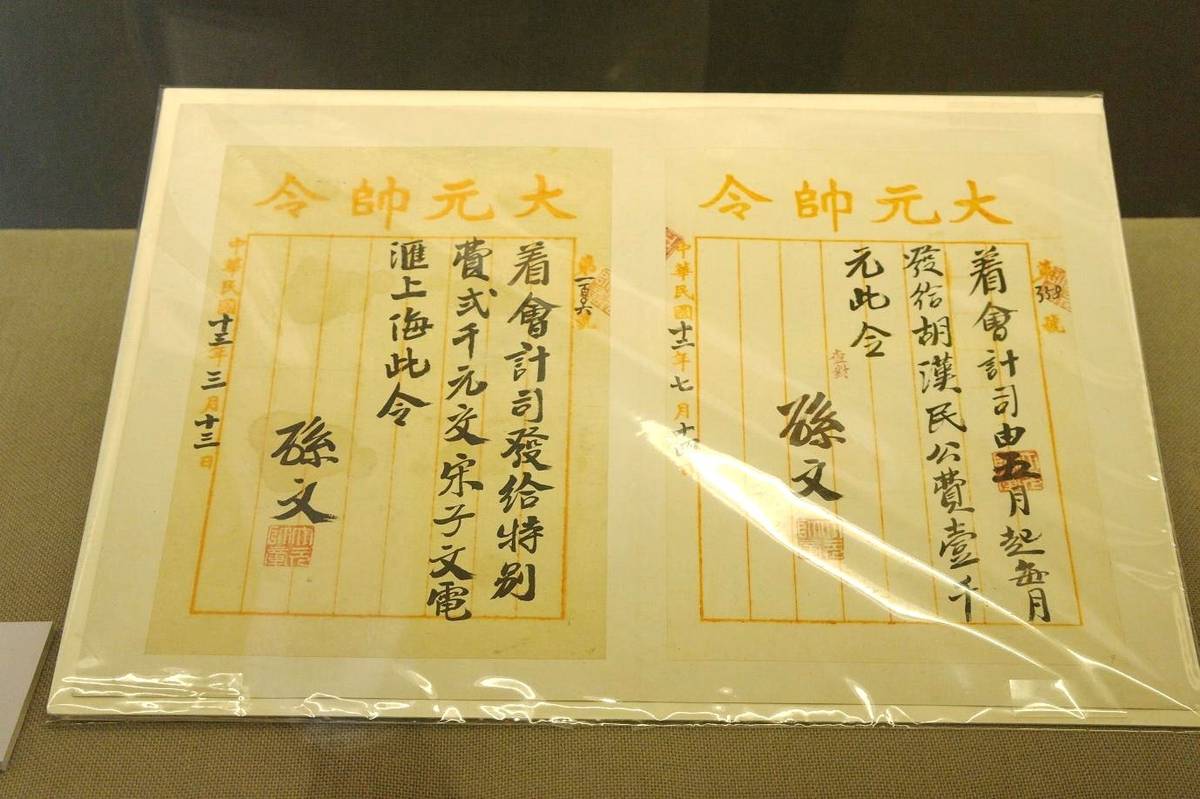 大元帥令
第359號
着會計司由五月起每月
發給胡漢民公費壹千
元此令
查對
孫文
大元帥章
中華民國十二年七月十
大元帥令
第一百〇六號
着會計司發給特別
費弍千元交宋子文電
滙上海此令
孫文
大元帥章
中華民國十三年三月十三日